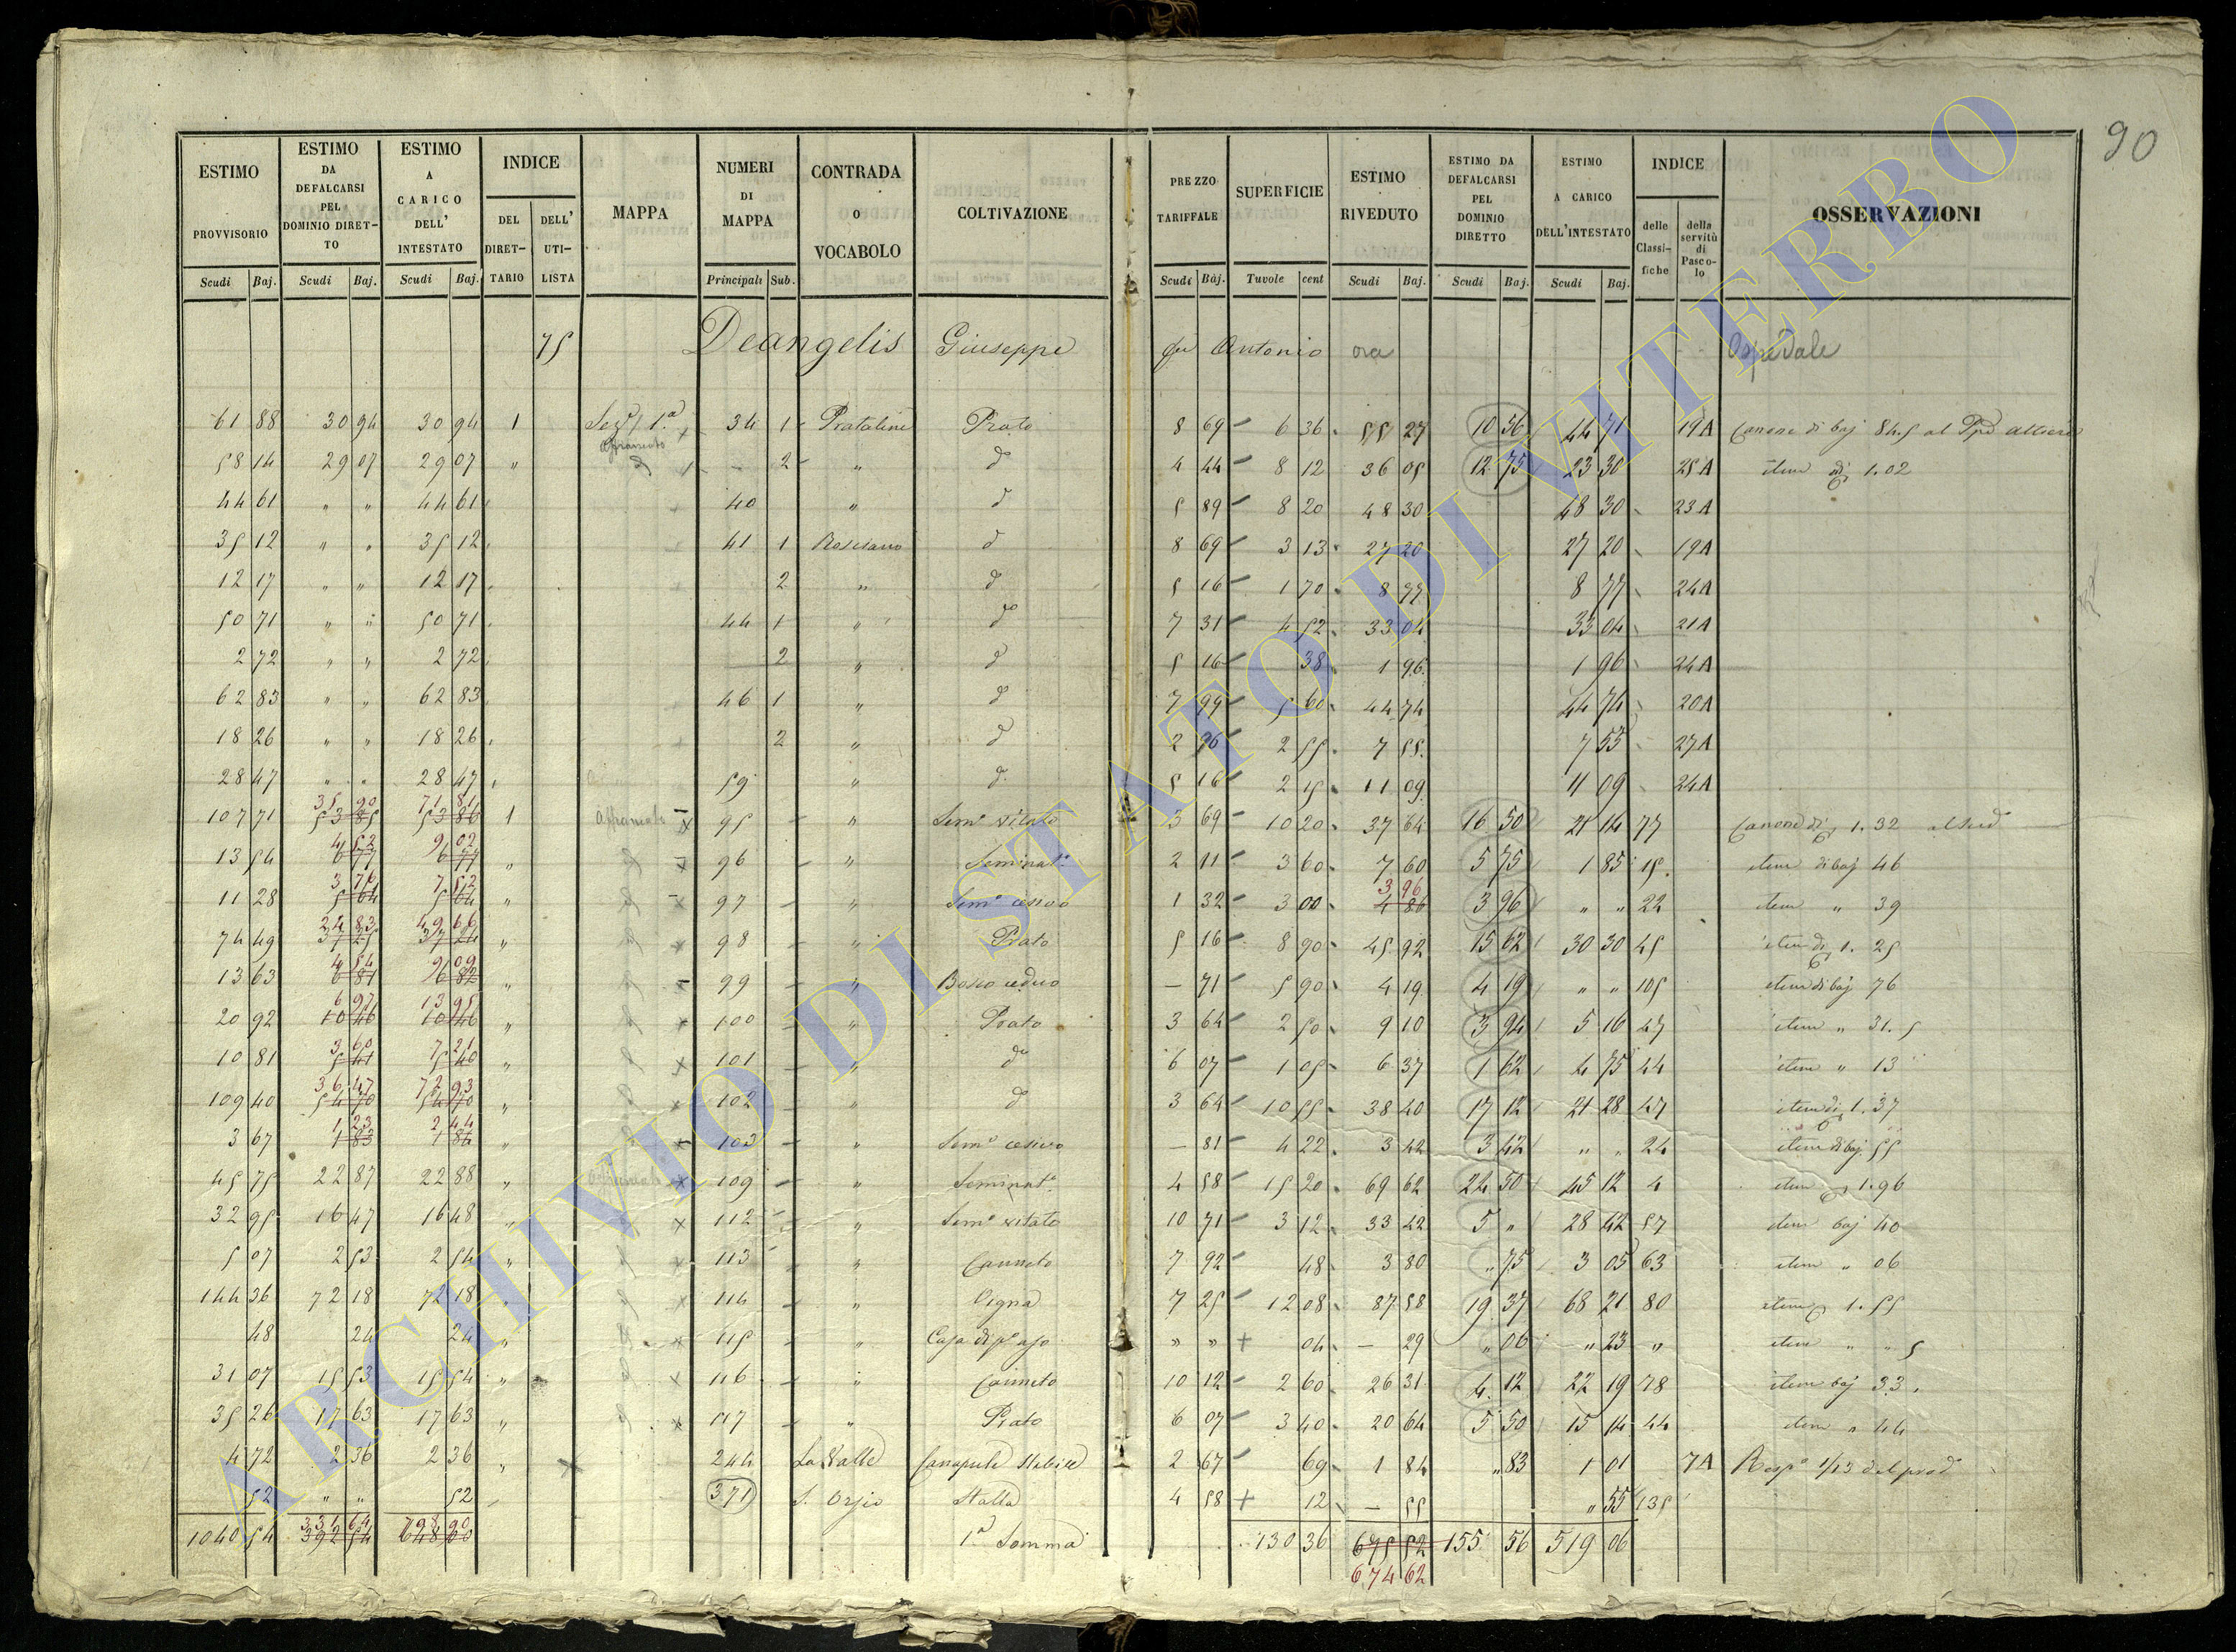 90
ESTIMO PROVVISORIO Scudi Baj. | ESTIMO DA DEFALCARSI PEL DOMINIO DIRETTO Scudi Baj. | ESTIMO A CARICO DELL' INTESTATO Scudi Baj. | INDICE DEL DIRETTARIO DELL' UTILISTA | MAPPA | NUMERI DI MAPPA Principali Sub. | CONTRADA O VOCABOLO | COLTIVAZIONE | PREZZO TARIFFALE Scudi Baj. | SUPERFICIE Tuvole cent | ESTIMO RIVEDUTO Scudi Baj. | ESTIMO DA DEFALCARSI PEL DOMINIO DIRETTO Scudi Baj. | ESTIMO A CARICO DELL'INTESTATO Scudi Baj. | INDICE delle Classifiche della servitù di Pascolo | OSSERVAZIONI
75 Deangelis Giuseppe fu Antonio ora Ospedale
61 88 30 94 30 94 1 Seze 1a Affrancato 34 1 Pratolini Prato 8 69 6 36 55 27 10 56 44 71 19A Canone di baj 84.5 al
58 14 29 07 29 07 " d 2 " do 4 44 8 12 36 05 12 75 23 30 25A item di 1.02
44 61 " " 44 61 40 " do 5 89 8 20 48 30 48 30 23A
35 12 " " 35 12 41 1 Rosciano do 8 69 3 13 27 20 27 20 19A
12 17 " " 12 17 2 " do 5 16 1 70 8 77 8 77 24A
50 71 " " 50 71 44 1 " do 7 31 4 52 33 04 33 04 21A
2 72 " " 2 72 2 " do 5 16 38 1 96 1 96 24A
62 83 " " 62 83 46 1 " do 7 99 5 60 44 74 44 74 20A
18 26 " " 18 26 2 " do 2 96 2 55 7 55 7 55 27A
28 47 " " 28 47 59 " do 5 16 2 15 11 09 11 09 24A
35 90 71 81
107 71 53 85 53 86 1 Affrancato x 95 " Semo vitato 3 69 10 20 37 64 16 50 21 14 77 Canone di 1.32
4 52 9 02
13 54 6 77 6 77 " x 96 " Seminato 2 11 3 60 7 60 5 75 1 85 15 item di baj 46
3 76 7 52 3 96
11 28 5 64 5 64 " x 97 " Semo cesivo 1 32 3 00 4 86 3 96 " " 22 item " 39
24 83 49 66
74 49 37 25 37 24 " x 98 " Prato 5 16 8 90 45 92 15 62 30 30 45 item di 1.25
4 54 9 09
13 63 6 81 6 82 " 99 " Bosco ceduo - 71 5 90 4 19 4 19 " " 105 item di baj 76
6 97 13 95
20 92 10 46 10 46 " x 100 " Prato 3 64 2 50 9 10 3 94 5 16 47 item " 31.5
3 60 7 21
10 81 5 41 5 40 " x 101 " do 6 07 1 05 6 37 1 62 4 75 44 item " 13
36 47 72 93
109 40 54 70 54 70 " x 102 " do 3 64 10 55 38 40 17 12 21 28 47 item di 1.37
1 23 2 44
3 67 1 83 1 84 " x 103 " Semo cesivo - 81 4 22 3 42 3 42 " " 24 item di baj 55
45 75 22 87 22 88 " x 109 " Seminato 4 58 15 20 69 62 24 50 45 12 4 item 1.96
32 95 16 47 16 48 " x 112 " Semo vitato 10 71 3 12 33 42 5 " 28 42 57 item baj 40
5 07 2 53 2 54 " x 113 " Canneto 7 92 48 3 80 " 75 3 05 63 item " 06
144 36 72 18 72 18 " x 114 " Vigna 7 25 12 08 87 58 19 37 68 21 80 item 1.55
48 24 24 " x 115 " Casa di po uso " " + 04 - 29 " 06 " 23 " item " " 5
31 07 15 53 15 54 " x 116 " Canneto 10 12 2 60 26 31 4 12 22 19 78 item baj 33
35 26 17 63 17 63 " x 117 " Prato 6 07 3 40 20 64 5 50 15 14 44 item " 44
4 72 2 36 2 36 " x 244 La Valle Canapule Stabile 2 67 69 1 84 " 83 1 01 7A Rispa 1/13 del prod
52 " " 52 371 S. Stalla 4 58 + 12 - 55 " 55 135
331 64 708 90
1040 54 392 54 648 00 1a Somma 130 36 675 52 155 56 519 06
674 62
ARCHIVIO DI STATO DI VITERBO